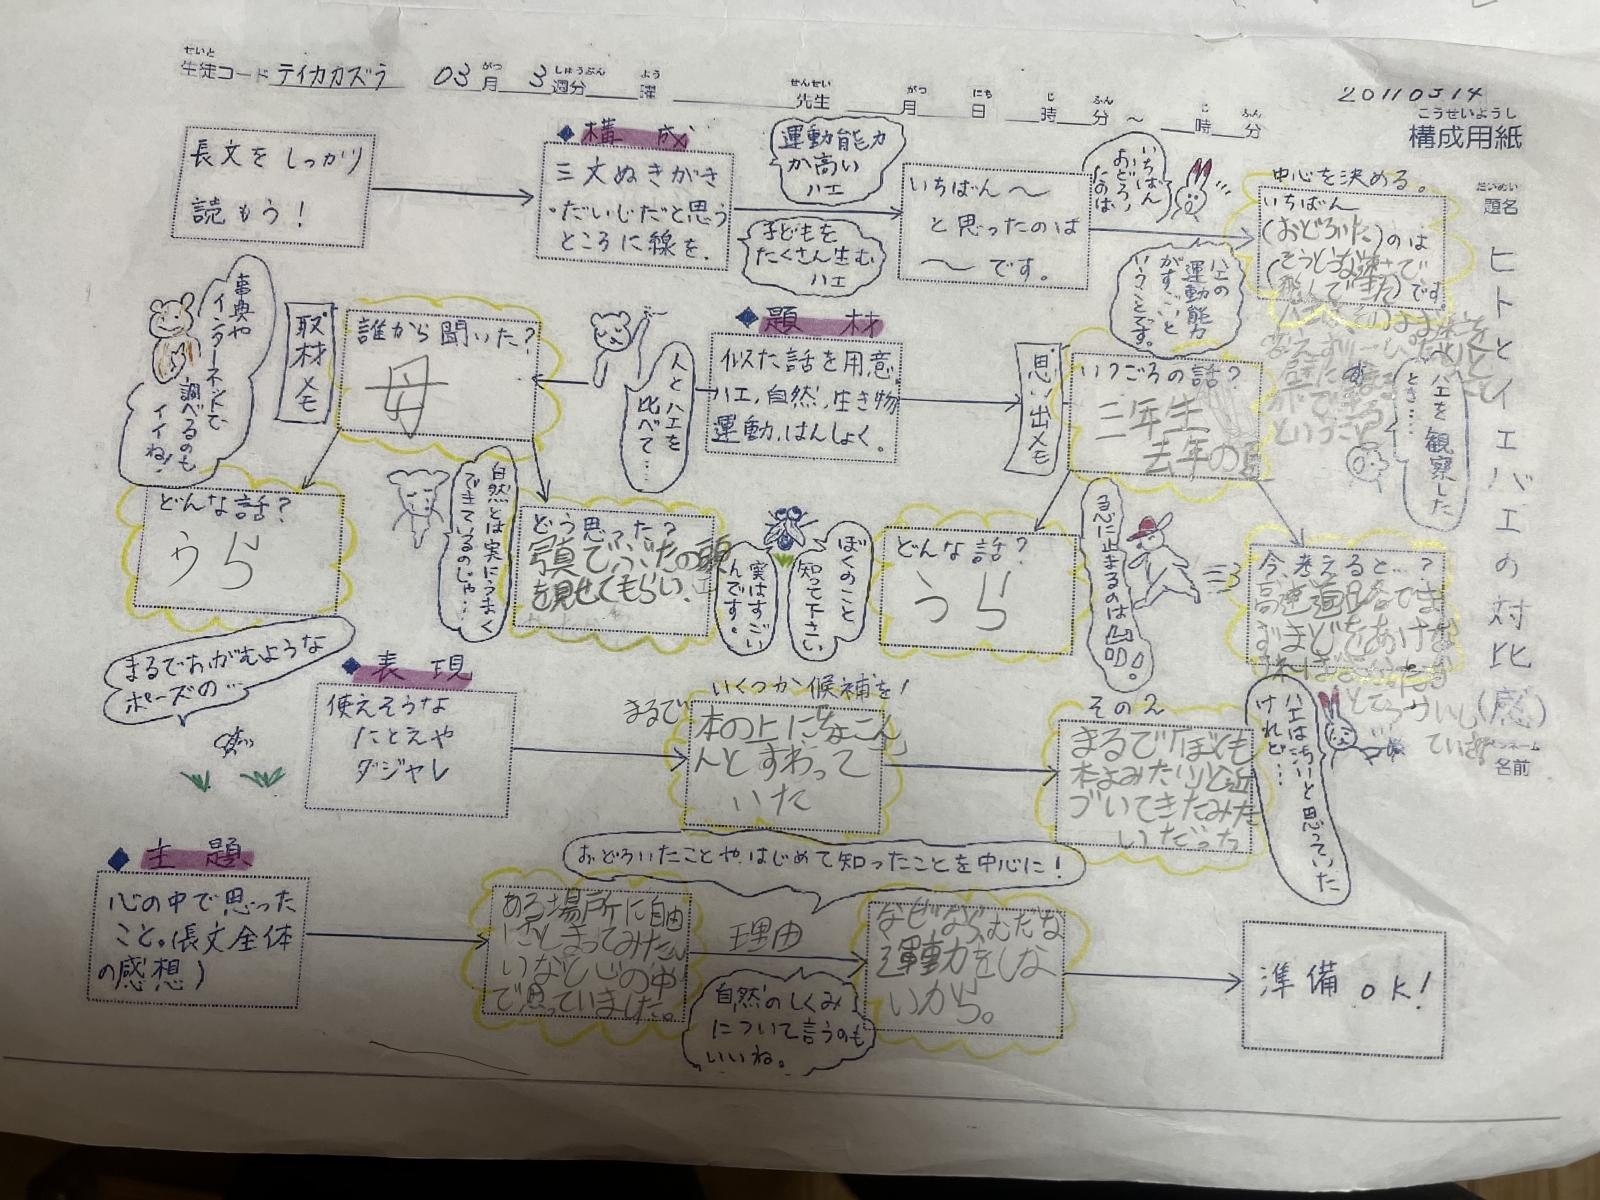 せいと
生徒コード テイカカズラ 03月 3週分 曜 先生 月 日 時 分 ～ 時 分
がつ しゅうぶん よう せんせい がつ にち じ ふん じ ふん
20110314
こうせいようし
構成用紙
だいめい
題名
ヒトとイエバエの対比(感)
ペンネーム
名前
長文をしっかり
読もう！
◆構成
三文ぬきがき
・だいじだと思う
ところに線を.
運動能力
が高い
ハエ
子どもを
たくさん生む
ハエ
いちばん～
と思ったのは
～です。
いちばん
おどろい
たのは
中心を決める。
いちばん
(おどろいた)のは
(そうとうな速さで
飛んできた)です。
ハエの
運動能力
がすごいと
いうことです。
ハエを観察した
とき…
事典や
インターネットで
調べるのも
イイね！
取材メモ
誰から聞いた？
母
人とハエを
比べて…
◆題材
似た話を用意.
ハエ,自然,生き物
運動,はんしょく。
思い出メモ
いつごろの話？
三年生
去年の
どんな話？
うら
自然とは実にうまく
できているのじゃ…
どう思った？
写真でぶたの頭
を見せてもらい.
実はすごい
んです。
ぼくのこと
知って下さい
どんな話？
うら
急に止まるのは
今、考えると…？
高速道路でま
まどをあけ
まるでおがむような
ポーズの…
◆表現
使えそうな
たとえや
ダジャレ
いくつか候補を！
まるで
本の上に「なこん
んとすわって
いた
その２
まるで「ぼくも
本よみたい」と近
づいてきたみた
いだった
ハエはちいさいと思っていた
けれど…
◆主題
心の中で思った
こと。(長文全体
の感想)
おどろいたことや、はじめて知ったことを中心に！
ある場所に自由
にとまってみた
いなと心の中
で思っていました。
理由
自然のしくみ
について言うのも
いいね。
なぜならむだな
運動をしな
いから。
準備OK！